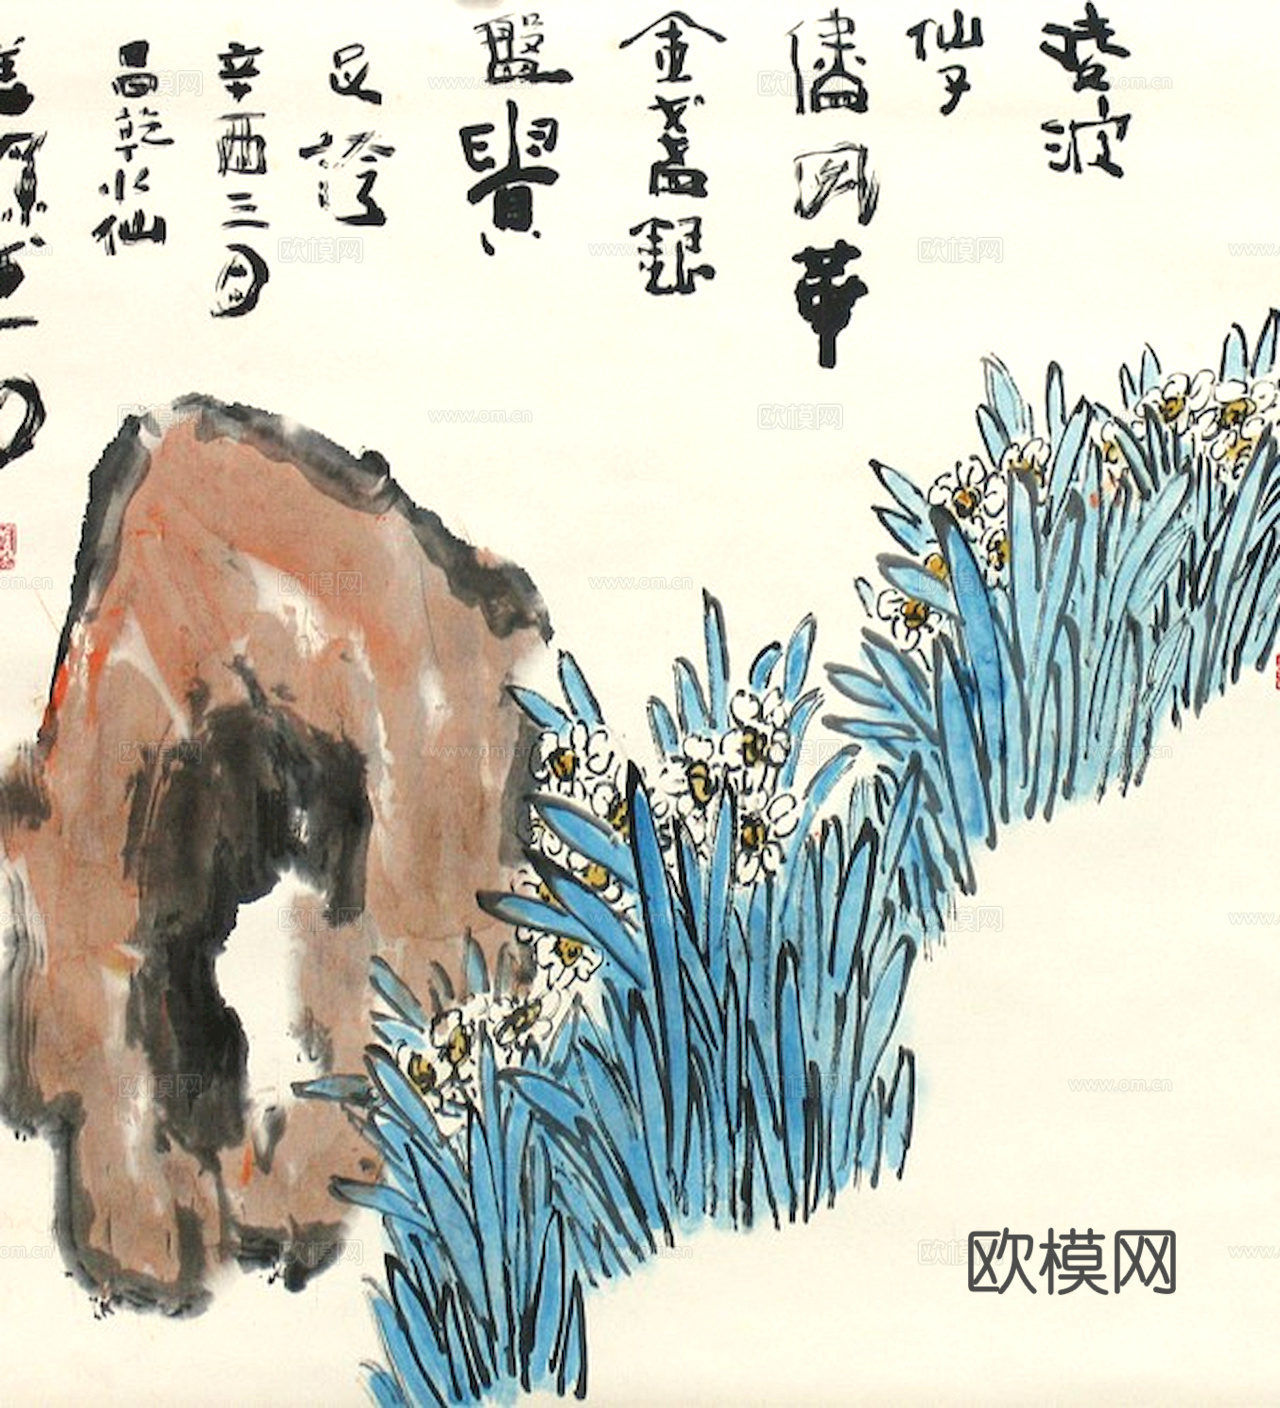 凌波
仙子
儘風華
金盞銀
盤實
足誇
辛酉三月
昌乾水仙
欧模网
www.om.cn